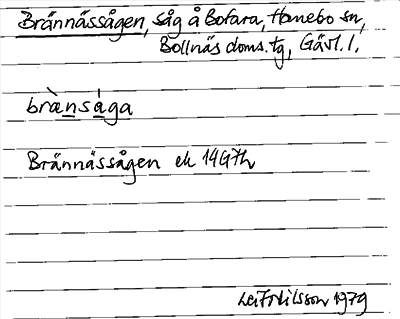 Brännässågen, såg å Bofara, Hanebo sn,
Bollnäs doms. tg, Gävl. l.
brànsága
Brännässågen ek 14G7h
Leif Nilsson 1979